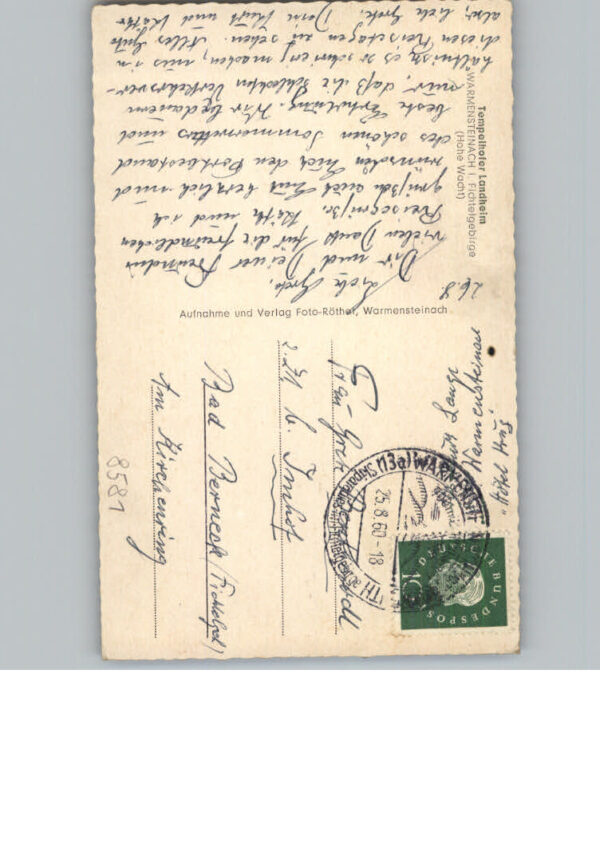 Tempelhofer Landheim
WARMENSTEINACH i. Fichtelgebirge
(Hohe Wacht)
26.8
Liebe Grete,
Dir und Deiner Freundin
vielen Dank für die freundlichen
Reisegrüße. Käthe und ich
grüßen Euch herzlich und
wünschen Euch den Fortbestand
des schönen Sommerwetters und
beste Erholung. Wir bedauern
nur, daß die schlechten Verkehrsver-
hältnisse es so schwierig machen, uns in
diesen Reisetagen zu sehen. Alles Gute
also, liebe Grete. Dein Kurt und Käthe
Aufnahme und Verlag Foto-Röthel, Warmensteinach
Kurt Lange
Warmensteinach
"Hotel
(13a) WARMENSTEINACH
25.8.60-18
DEUTSCHE BUNDESPOST
10
Frau Grete
z. Zt. b. Imhof
Bad Berneck/Fichtelgeb/
Am Kirchenring
8581